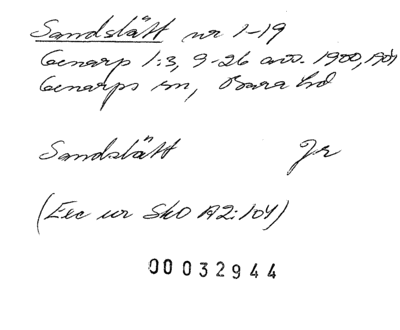 Sandslätt nr 1-19
Genarp 1:3, 9-26 avs. 1900, 1904
Genarps sn, Bara hd
Sandslätt Jr
(Exc ur SkO A2:104)
00032944